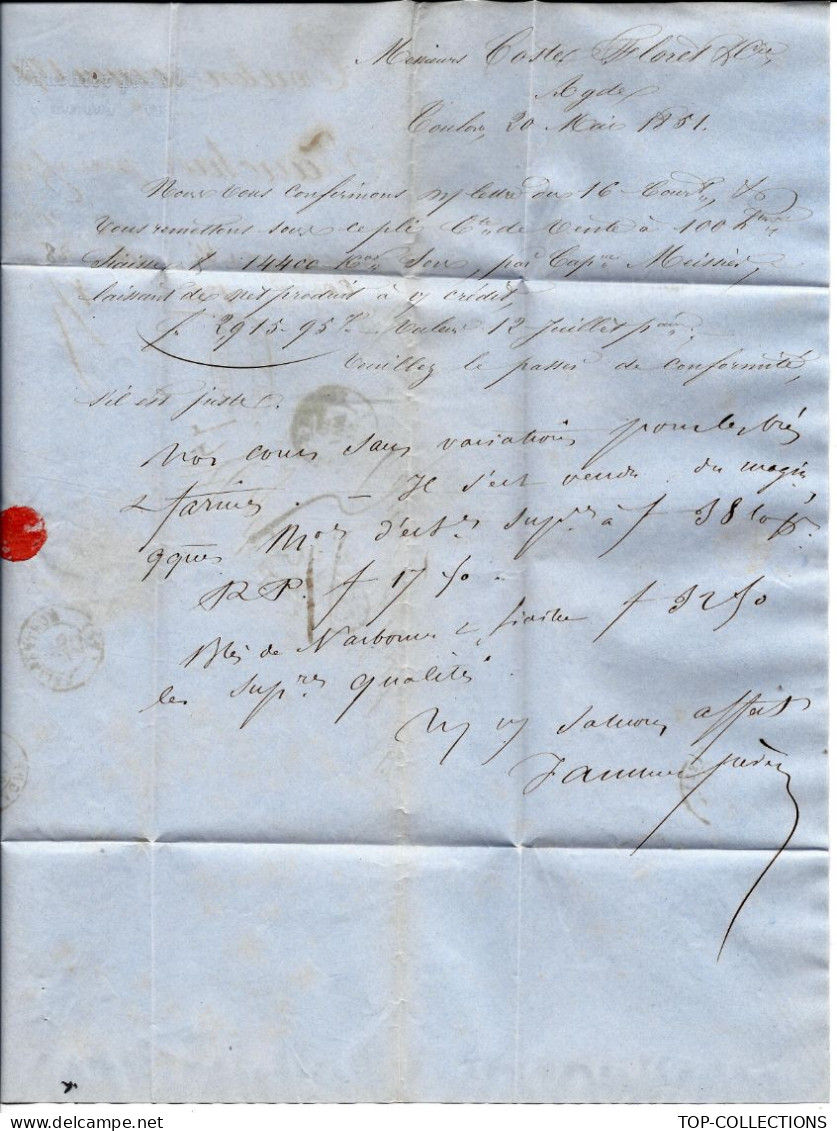 Messieurs Coste Floret & Cie,
Agde
Toulon, 20 Mai 1851.
Nous vous confirmons n/ lettre du 16 Court, &
vous remettons sous ce pli Cte de Vente à
14400 Kos Son, par Capne Meissier,
laissant de net produit à v/ crédit,
f. 2915.95 Valeur 12 Juillet
Veuillez le passer de conformité,
s'il est juste.
Nos cours sans variations pour les blés
& farines. — Il s'est vendu du magin,
qques supres à f 38
RP. f 17 50.
Blés de Narbonne & f 32 50
les supres qualités.
N/ v/ saluons affect
frères
TOP-COLLECTIONS